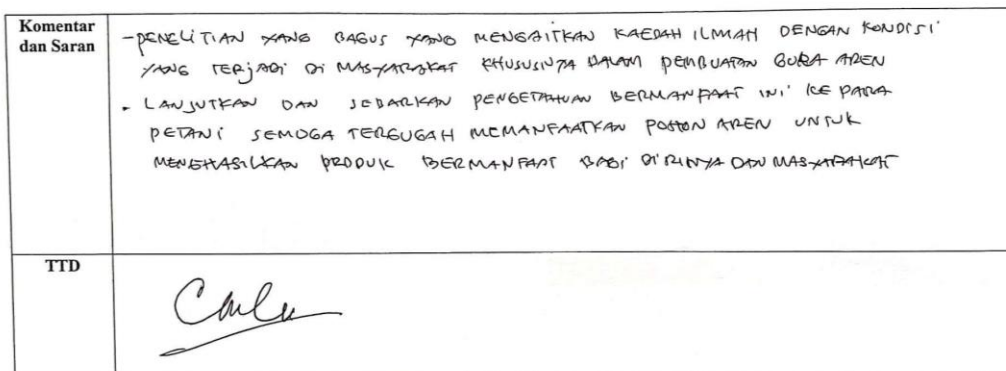 Komentar
dan Saran
- PENELITIAN YANG BAGUS YANG MENGAITKAN KAEDAH ILMIAH DENGAN KONDISI
YANG TERJADI DI MASYARAKAT KHUSUSNYA DALAM PEMBUATAN GULA AREN
- LANJUTKAN DAN SEBARKAN PENGETAHUAN BERMANFAAT INI KE PARA
PETANI SEMOGA TERGUGAH MEMANFAATKAN POHON AREN UNTUK
MENGHASILKAN PRODUK BERMANFAAT BAGI DIRINYA DAN MASYARAKAT
TTD